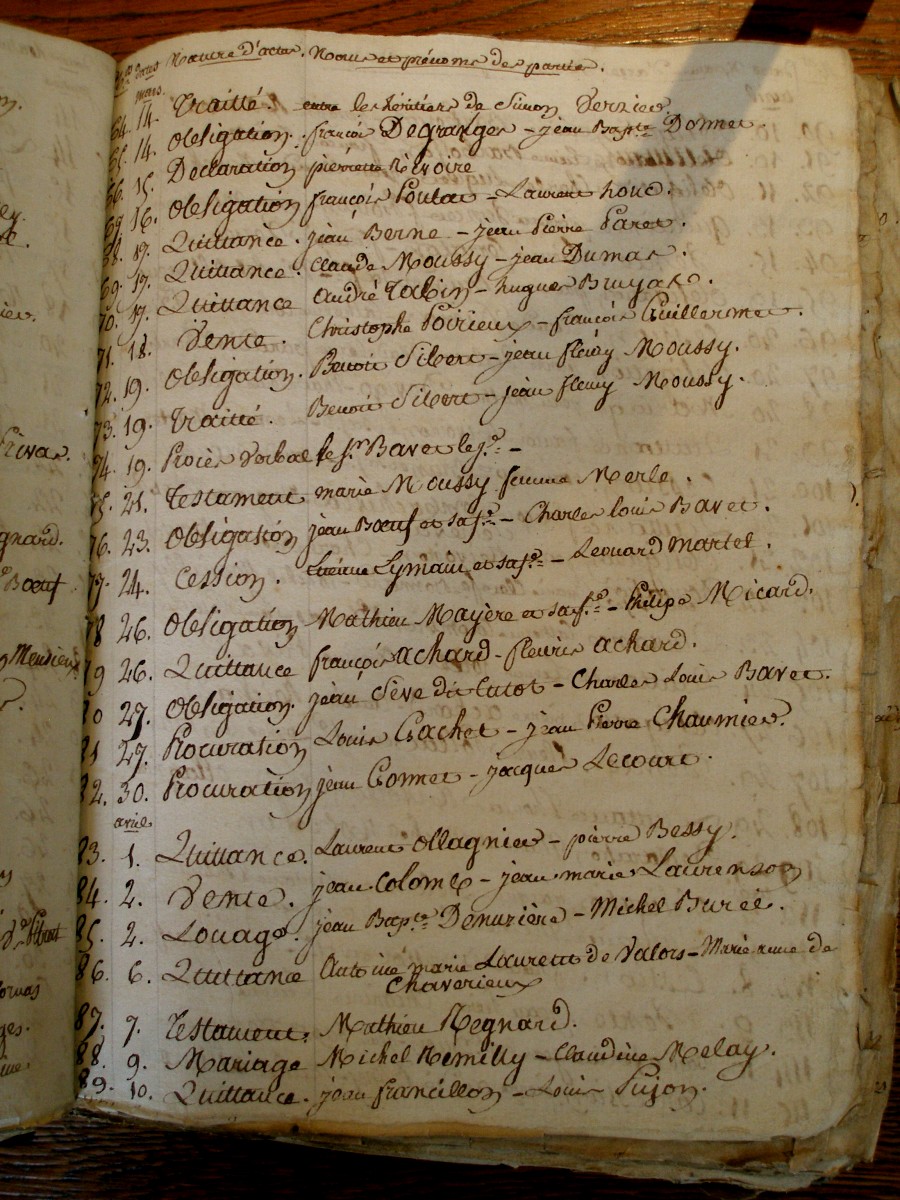 N.os Dates Nature d'actes. Noms et prénoms des parties.
mars.
64. 14. Traitté. entre les héritiers de Simon Verzier.
65. 14. Obligation. françois Degranges - jean Bap.te Donnet.
66. 15. Declaration pierrette Rèvoire
67. 16. Obligation françois Poulat - Laurent houc.
68. 17. Quittance. jean Berne - jean Pierre Paret.
69. 17. Quittance. Claude Moussy - jean Dumas.
70. 17. Quittance André Tabin - hugues Bruyas.
71. 18. Vente. Christophe Poirieux - françois Guillermet.
72. 19. Obligation. Benoit Sibert - jean fleury Moussy.
73. 19. Traitté. Benoit Sibert - jean fleury Moussy.
74. 19. Procès Verbal le s.r Bavet le j.e -
75. 21. Testament marie Moussy femme Merle.
76. 23. Obligation jean Bœuf et sa f.e - Charles louis Bavet.
77. 24. Cession. Etienne Lymain et sa f.e - Leonard Martel.
78 26. Obligation Mathieu Mayère et sa f.e - Philipe Micard.
79 26. Quittance françois Achard - fleurie Achard.
80 27. Obligation. jean Sève dit Cutot - Charles Louis Bavet.
81 27. Procuration Louis Gachet - jean Pierre Chaumier.
82. 30. Procuration jean Gonnet - jacques Lecourt.
avril
83. 1. Quittance. Laurent Ollagnier - pierre Bessy.
84. 2. Vente. jean Colomb - jean marie Laurenson
85. 2. Louage. jean Bap.te Denuzière - Michel Burel.
86. 6. Quittance Antoine marie Laurent de Valors - Marie anne de
Chaverieux
87. 7. Testament. Mathieu Regnard.
88. 9. Mariage Michel Remilly - Claudine Melay.
89. 10. Quittance. jean francillon - Louis Pujon.